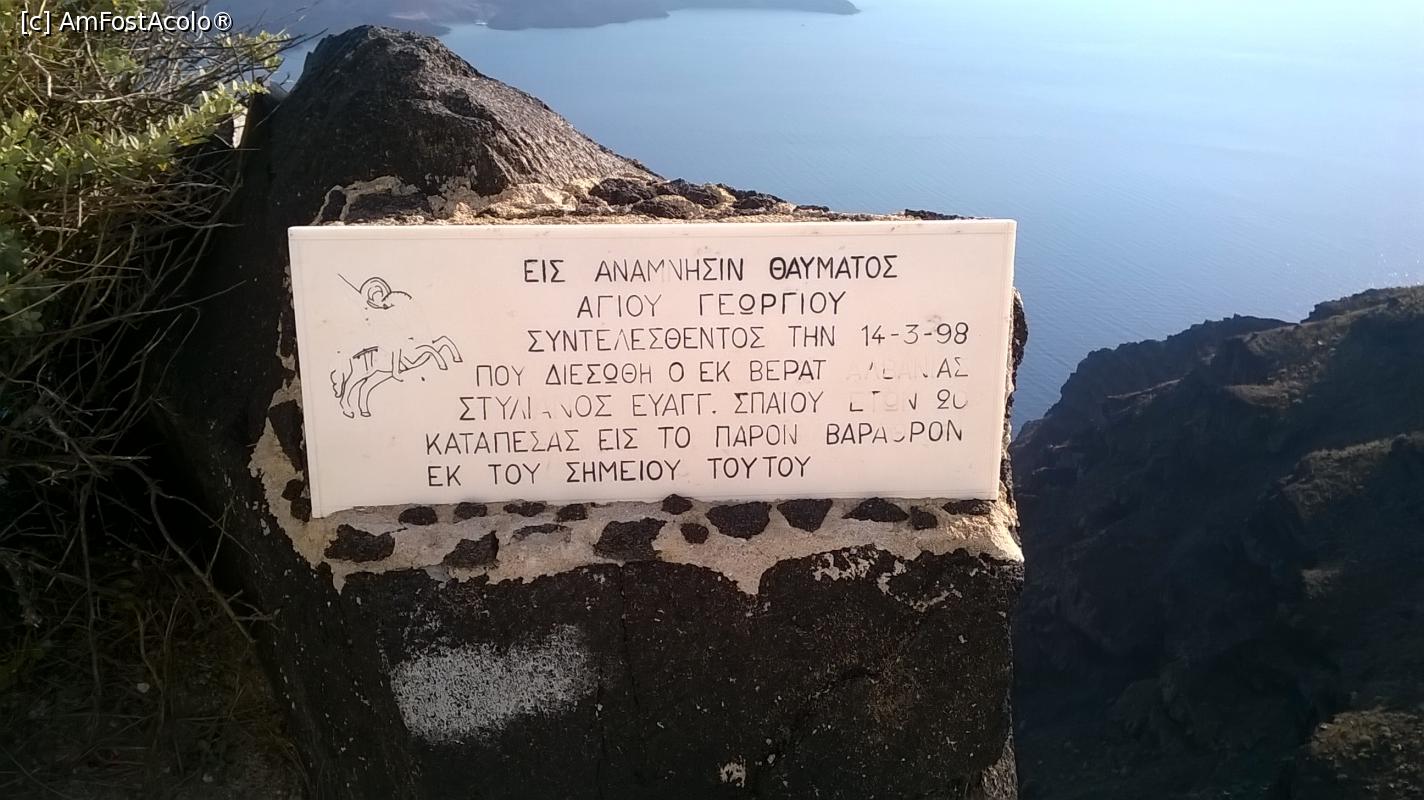 [c] AmFostAcolo®
ΕΙΣ ΑΝΑΜΝΗΣΙΝ ΘΑΥΜΑΤΟΣ
ΑΓΙΟΥ ΓΕΩΡΓΙΟΥ
ΣΥΝΤΕΛΕΣΘΕΝΤΟΣ ΤΗΝ 14-3-98
ΠΟΥ ΔΙΕΣΩΘΗ Ο ΕΚ ΒΕΡΑΤ ΑΛΒΑΝΙΑΣ
ΣΤΥΛΙΑΝΟΣ ΕΥΑΓΓ. ΣΠΑΙΟΥ ΕΤΩΝ 20
ΚΑΤΑΠΕΣΑΣ ΕΙΣ ΤΟ ΠΑΡΟΝ ΒΑΡΑΘΡΟΝ
ΕΚ ΤΟΥ ΣΗΜΕΙΟΥ ΤΟΥΤΟΥ